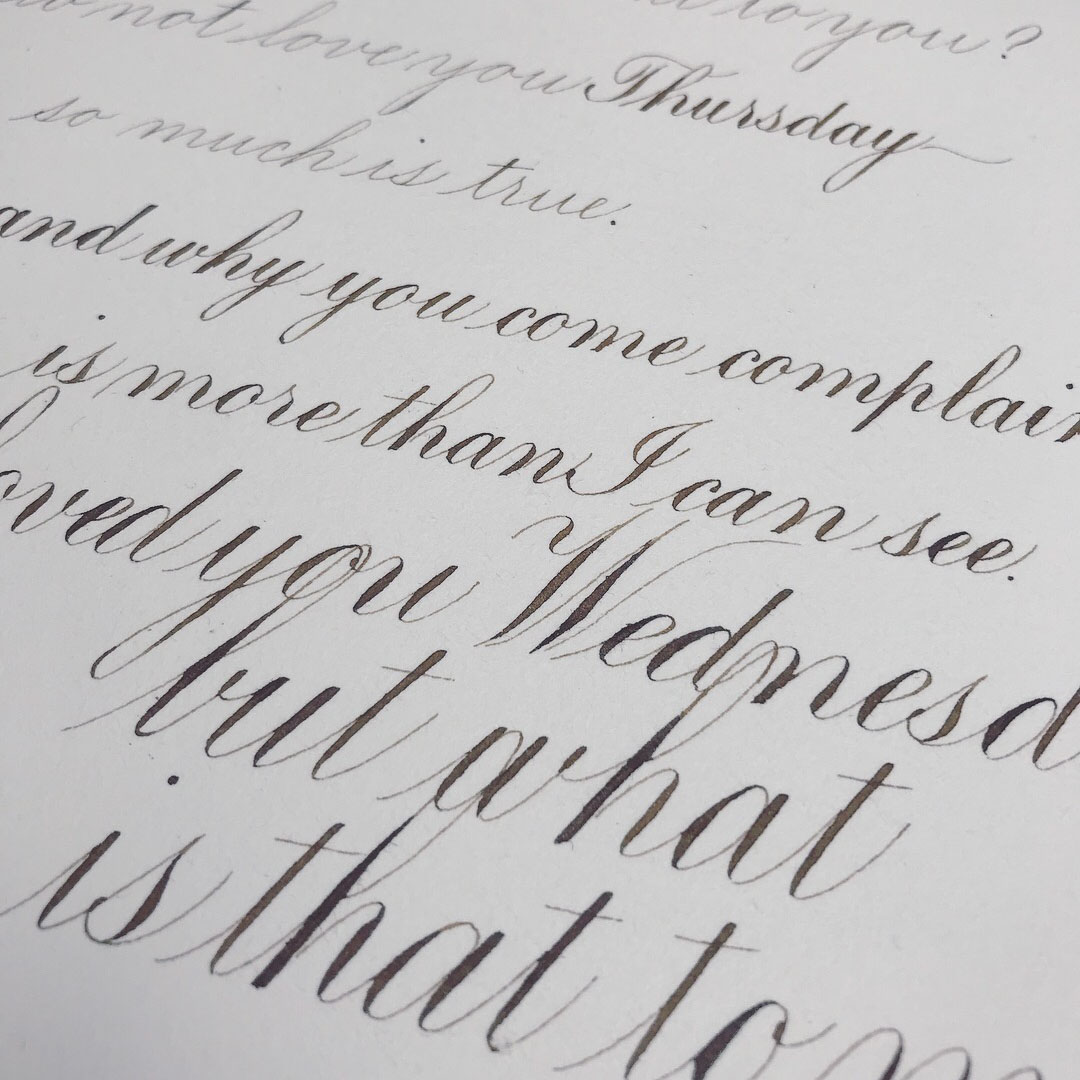 not love you Thursday to you?
so much is true.
and why you come complain
is more than I can see.
loved you Wednesd
but what
is that to m